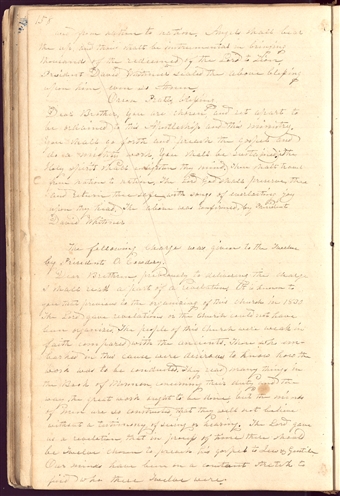 158
and from nation to nation, Angels shall bear
thee up, and thou shalt be instrumental in bringing
thousands of the redeemed of the Lord to Zion.
President David Whitmer sealed the above blessing
upon him, even so Amen.
Orson Pratt's blessing.
Dear Brother, you are chosen and set apart to
be ordained to this Apostleship and this ministry.
You shall go forth and preach the gospel and
do a mighty work. You shall be sustained, the
Holy Spirit shall enlighten thy mind, thou shalt travel
from nation to nation, the Lord God shall preserve thee
and return thee safe, with songs of everlasting joy
upon thy head. The above was confirmed by President
David Whitmer.
The following charge was given to the Twelve
by President O. Cowdery.
Dear Brethren, previously to delivering this charge
I shall read a part of a Revelation. It is known to
you that previous to the organizing of this church in 1830,
the Lord gave revelations or the Church could not have
been organized. The people of this church were weak in
faith compared with the ancients. Those who em-
barked in this cause were desirous to know how the
work was to be conducted. They read many things in
the Book of Mormon, concerning their duty and the
way the great work ought to be done, but the minds
of men are so constructed that they will not believe
without a testimony of seeing or hearing. The Lord gave
us a revelation that in process of time there should
be Twelve chosen to preach his gospel to Jew & Gentile
Our minds have been on a constant stretch to
find who these Twelve were